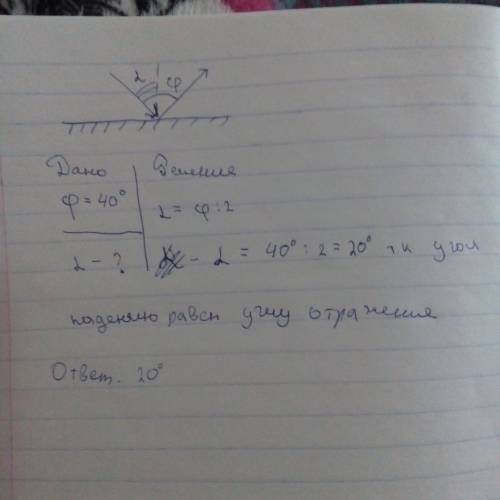 α φ
Дано Решение
φ = 40° α = φ : 2
α - ? - α = 40° : 2 = 20° т.к угол
падению равен углу отражения
Ответ. 20°